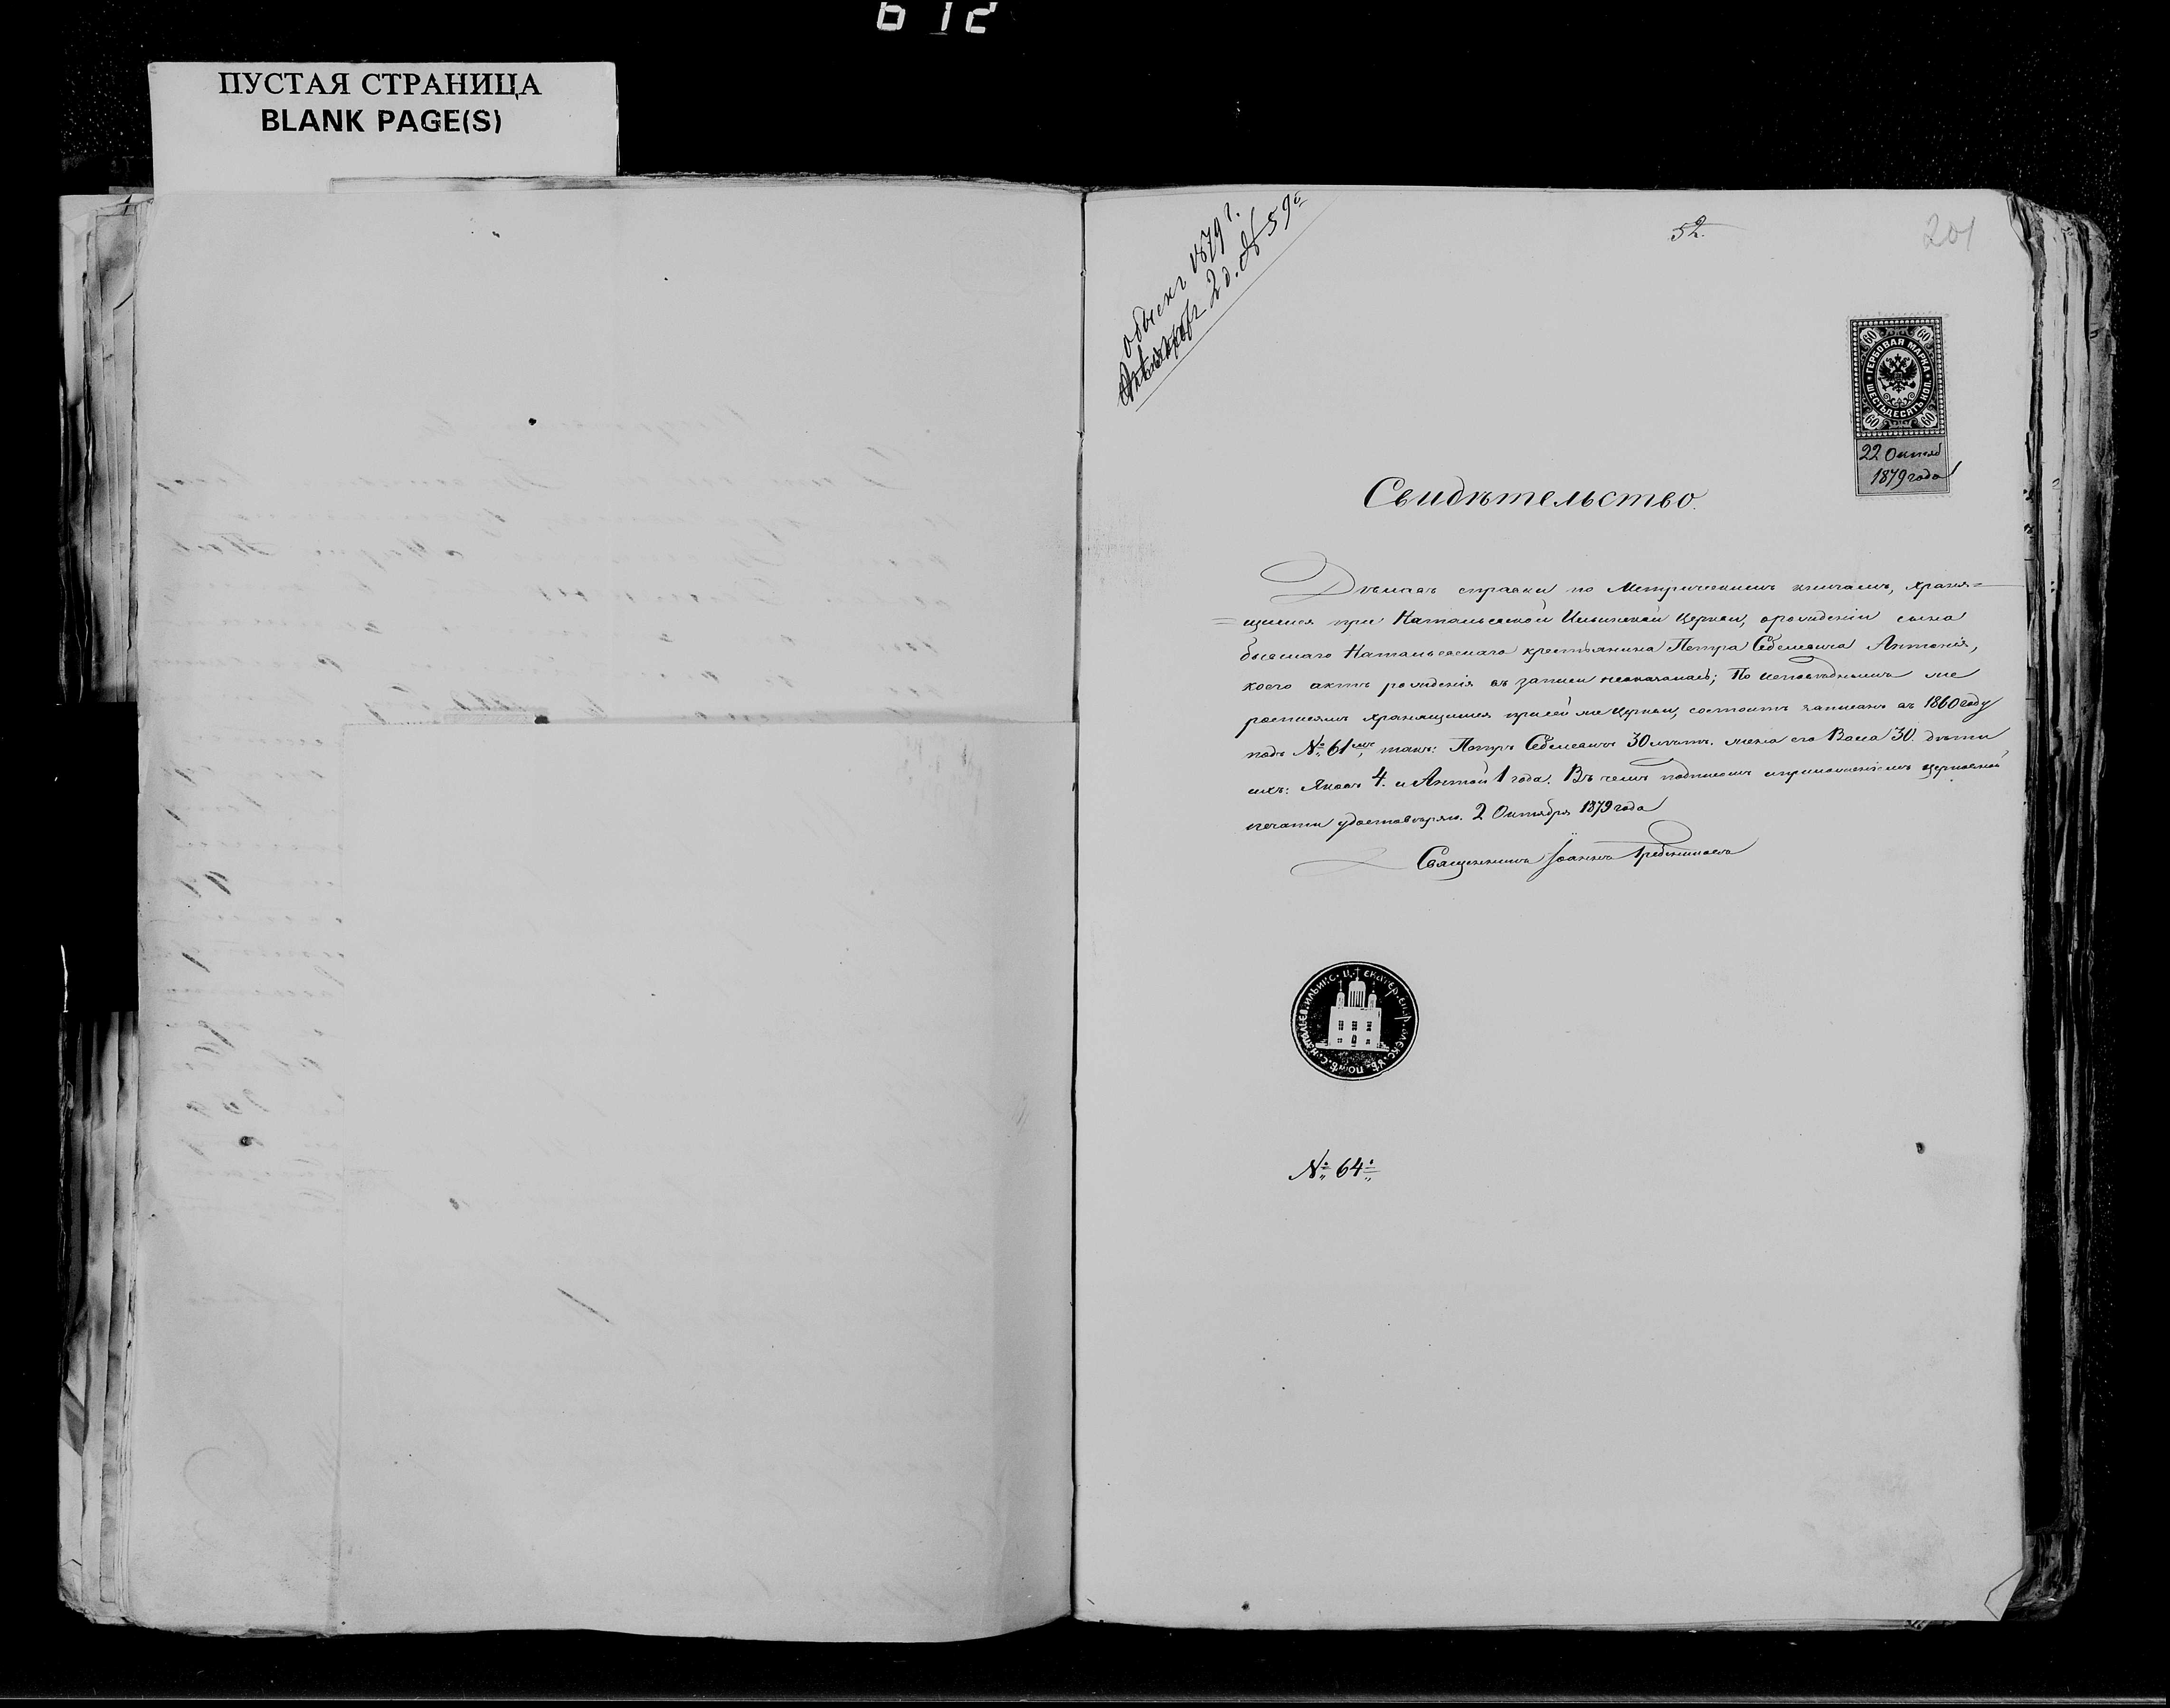 612
ПУСТАЯ СТРАНИЦА
BLANK PAGE(S)
обыскъ 1879 г.
2 о. № 59й
52.
201
60 60
ГЕРБОВАЯ МАРКА
ШЕСТЬДЕСЯТЪ КОП.
60 60
22 Октяб
1879 года
Свидѣтельство.
Дѣлавъ справки по Метрическимъ книгамъ, храня=
=щимся при Натальевской Ильинской Церкви, орождении сына
бывшаго Натальевскаго крестьянина Петра Антонія,
коего актъ рожденія въ записи неоказалась; По исповѣднымъ же
росписямъ хранящимся присей же Церкви, состоитъ записанъ въ 1860 году
подъ № 61мъ, такъ: Петръ 30 лѣтъ. жена его Васа 30. дѣти
ихъ: Яковъ 4. и Антоній 1 года. Въ чемъ подписомъ иприложеніемъ церковной
печати удостовѣряю. 2 Октября 1879 года
Священникъ Іоаннъ Гребенниковъ
С. НАТАЛЬЕВ. ИЛЬИНС. Ц. ЕКАТЕР. ЕПАР. АЛЕКС. УѢ.
№ 64й